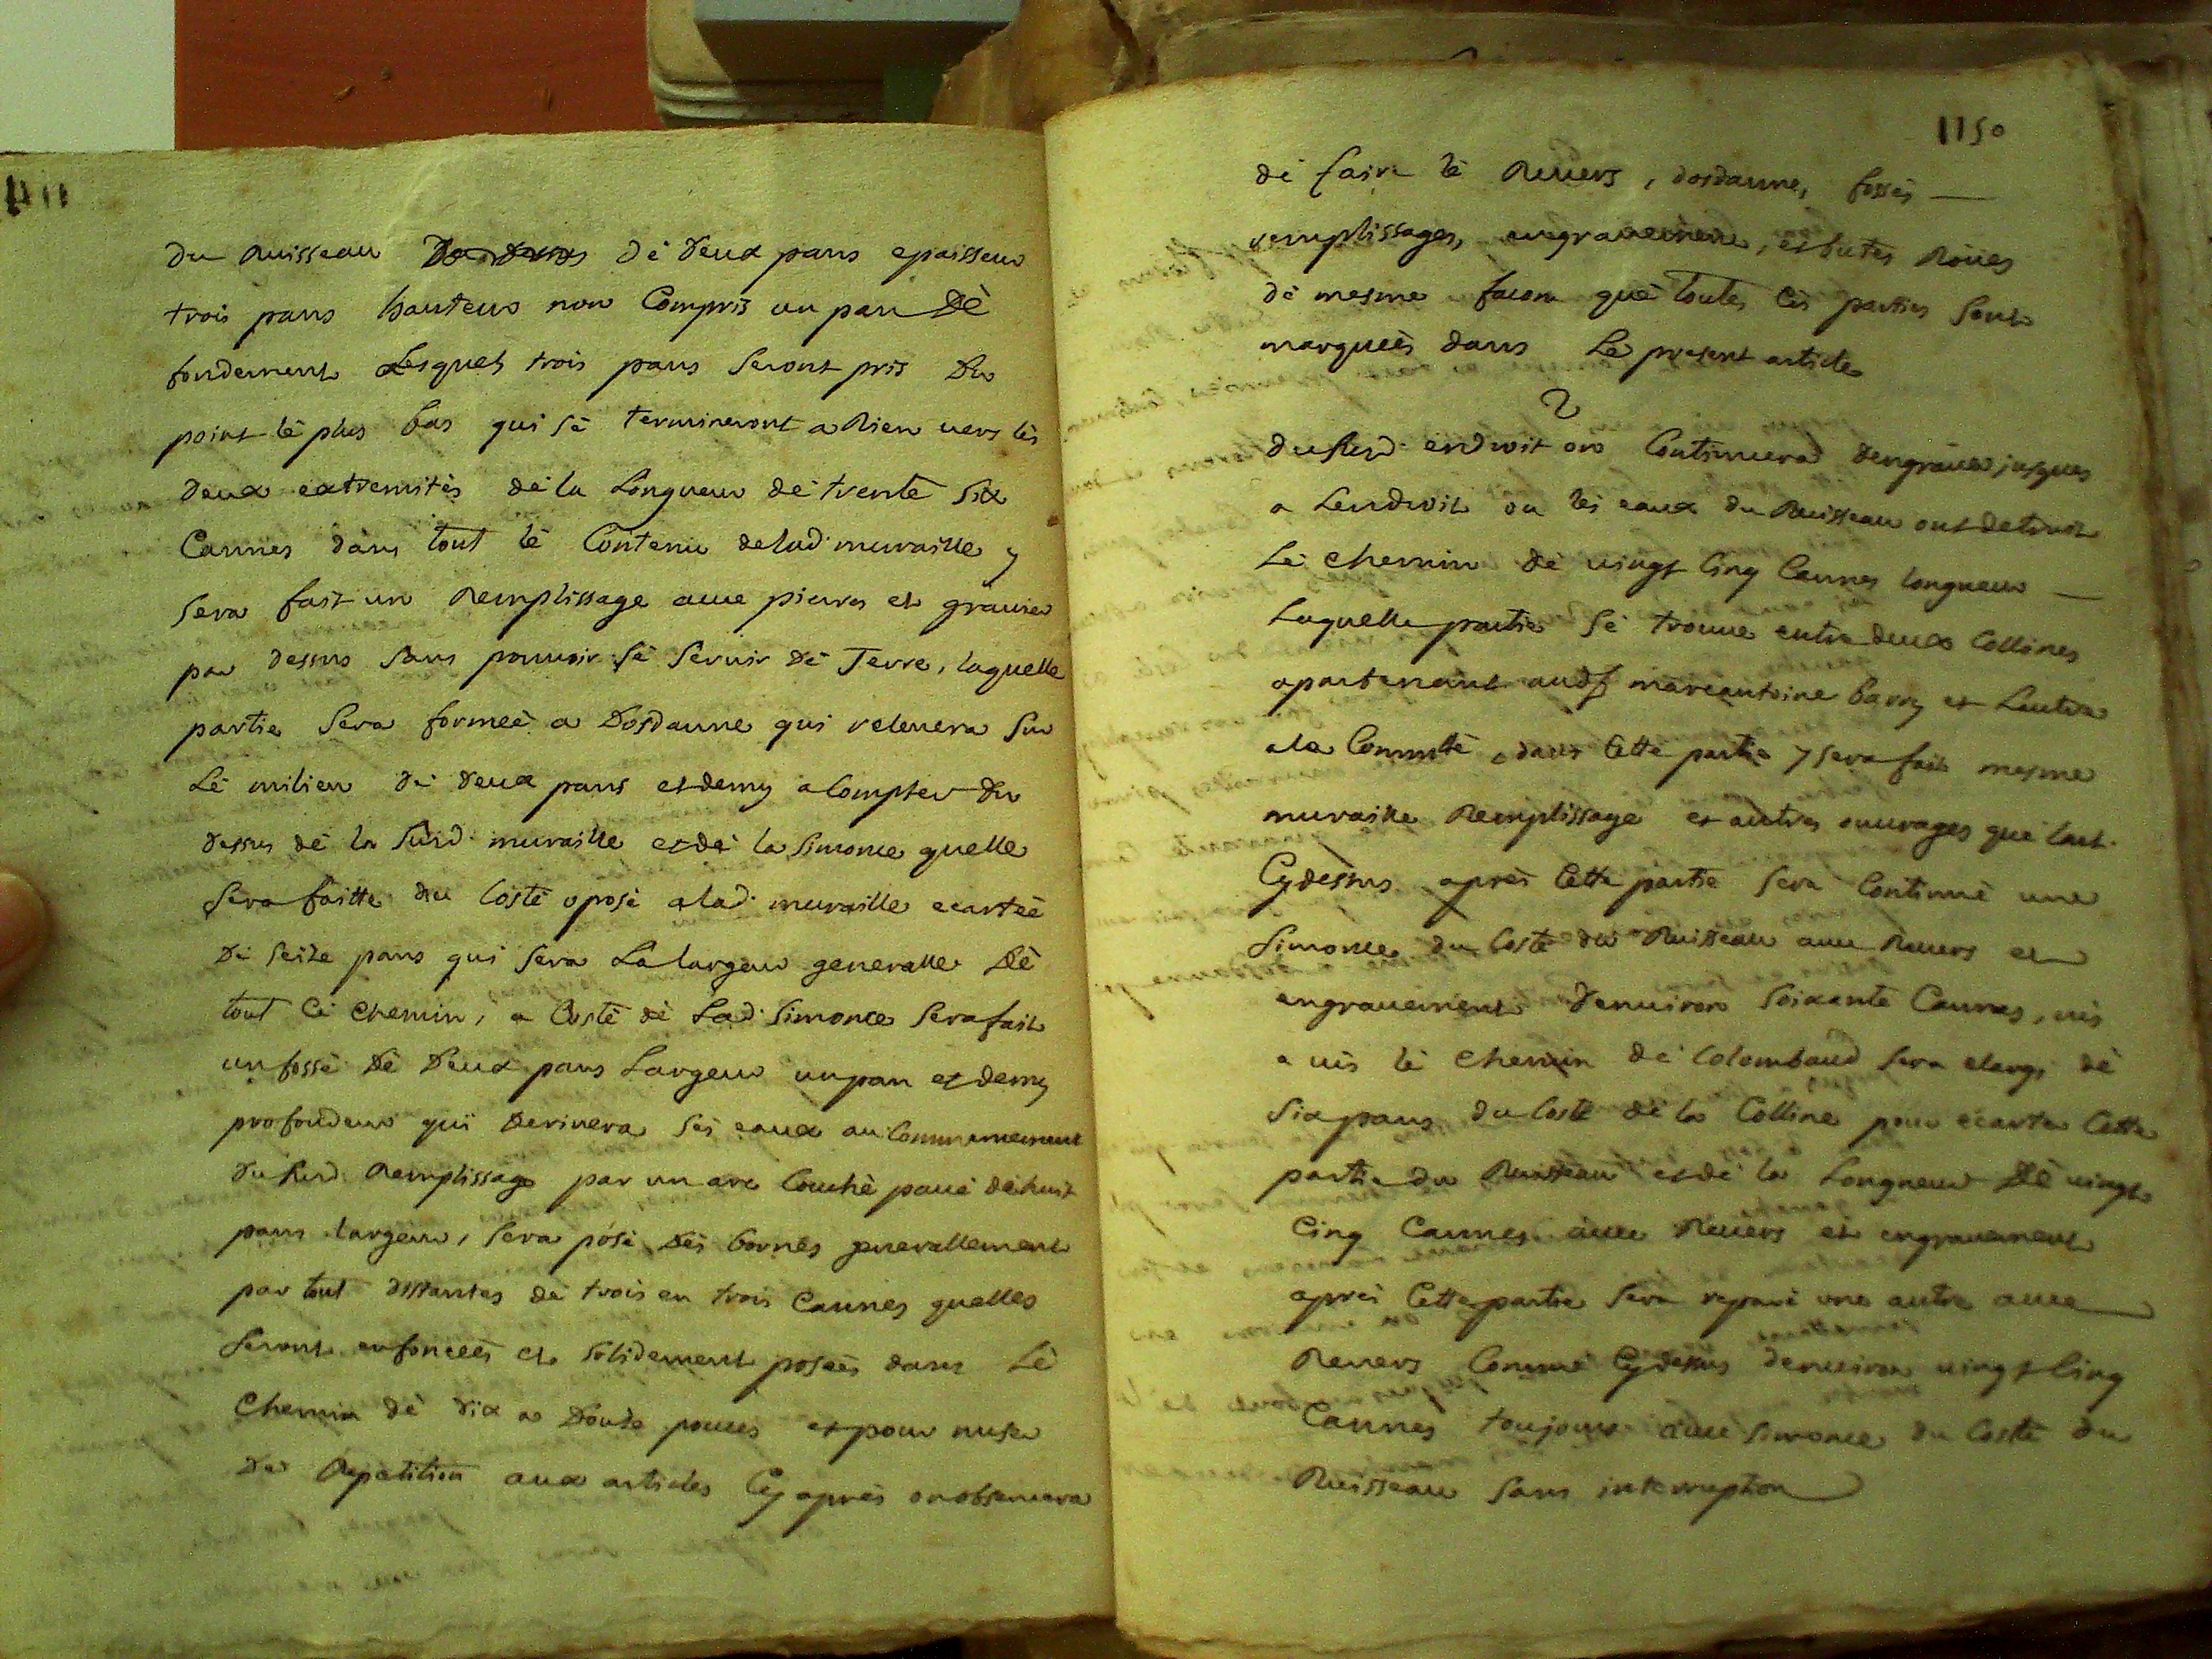 du Ruisseau de deux pans epaisseur
trois pans hauteur non Compris un pan Dè
fondement Lesquels trois pans seront pris Du
point lè plus bas qui sè termineront a Rien vers lès
deux extremitès dè la Longueur dè trente six
Cannes dans tout lè Contenu delad. muraille y
sera fait un Remplissage avec pierres et gravier
par dessus sans pouvoir sè servir dè Terre, laquelle
partie sera formeè a Dosdanne qui relevera sur
Lè milieu dè deux pans et demy a Compter du
dessus dè la susd. muraille et dè la simonce quelle
sera faitte du Costè oposè a lad. muraille ecarteè
Dè seize pans qui sera La largeur generalle Dè
tout Cè chemin, a Costè dè Lad. simonce sera fait
un fossè Dè Deux pans Largeur un pan et demy
profondeur qui Derivera sès eaux au Commencement
du susd. Remplissage par un arc Couchè pavè dè huit
pans largeur, sera posè Dès bornès generallement
par tout distantes dè trois en trois Cannes quelles
seront enfonceès et solidement poseès dans Lè
Chemin dè dix a Douze pouces et pour nuser
dè Repetition aux articles Cy après on observera
1150
dè faire lè Revers, dosdanne, fossès
remplissages, engravement, et butes Roües
dè mesme facon què toutes Cès parties sont
marqueès dans Lè present article
2
du susd. endroit on Continuera dengraver jusques
a Lendroit ou lès eaux du Ruisseau ont detruit
Lè chemin dè vingt Cinq Cannes longueur
Laquelle partie sè trouve entre deux Collines
apartenant marcantoine barry et Lautre
a la Commtè, dans Cette partie y sera fait mesme
muraille Remplissage et autres ouvrages què lart.
Cydessus après Cette partie sera Continuè une
simonce du Costè du Ruisseau avec Revers et
engravement Denviron soixante Cannes, vis
a vis lè chemin dè Colombaud sera elargi dè
six pans du Costè dè la Colline pour ecarter Cette
partie du Ruisseau et dè la Longueur Dè vingt
Cinq Cannes avec Revers et engravement
après Cette partie sera reparè une autre avec
Revers Comme Cydessus denviron vingt Cinq
Cannes toujours avec simonce du Costè du
Ruisseau sans interruption